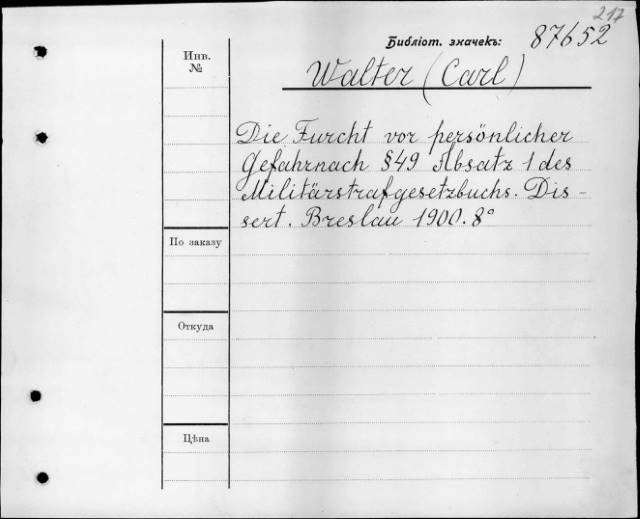 217
Библіот. значекъ: 87652
Инв.
№
Walter (Carl)
Die Furcht vor persönlicher
Gefahrnach §49 Absatz 1 des
Militärstrafgesetzbuchs. Dis-
sert. Breslau 1900. 8°
По заказу
Откуда
Цѣна